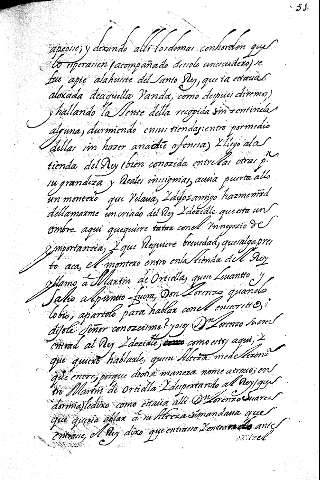 51
apeose, y dexando alli los demas con horden que
lo esperasen, acompañado de solo un escudero, se
fue a pie a la hueste del Santo Rey, que ya estaua
aloxada de aquella vanda, como despues diremos,
y hallando la gente della recogida sin sentinela
alguna, durmiendo en sus tiendas, entro por medio
dellas sin hazer a nadie ofensa, y llego a la
tienda del Rey bien conozida entre las otras pr
su grandeza y Reales insignias, auia puerta allo
un montero que velaua, y dijo amigo hazme md
de llamarme un criado del Rey y dezilde que esta un
ombre aqui que quiere tratar con el un negocio de
ymportancia, y que requiere breuedad, que salga pres
to aca, el montero entro en la tienda del Rey
llamo a Martin de Ortiella, que se leuanto y
salio al punto fuera, Don Lorenzo quando
lo bio, apartolo para hablar con el en secreto, i
disole señor conozeisme? yo soy Dn Lorenzo Suarez
entrad al Rey y dezilde como estoy aqui, y
que quiero hablarle, que su Alteza me de licencia
que entre, porque de otra manera no me atreuo; en
tro Martin de Ortiella y despertando al Rey que
dormia, le dixo como estaua alli Dn Lorenzo Suarez
que queria ablar a su Alteza si mandaua que
entrase, el Rey dixo que entrase y entrado ante